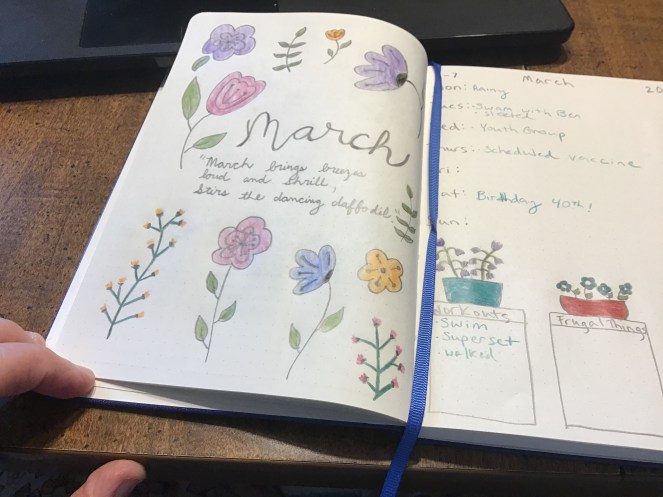 March
"March brings breezes
loud and shrill,
Stirs the dancing daffodil."
-7 March 20
on: Rainy
es: · Swim with Ben
· Sleeted
ed: · Youth Group
urs: · Scheduled vaccine
at: Birthday 40th!
un:
Workouts
· Swim
· Superset
· walked
Frugal Things